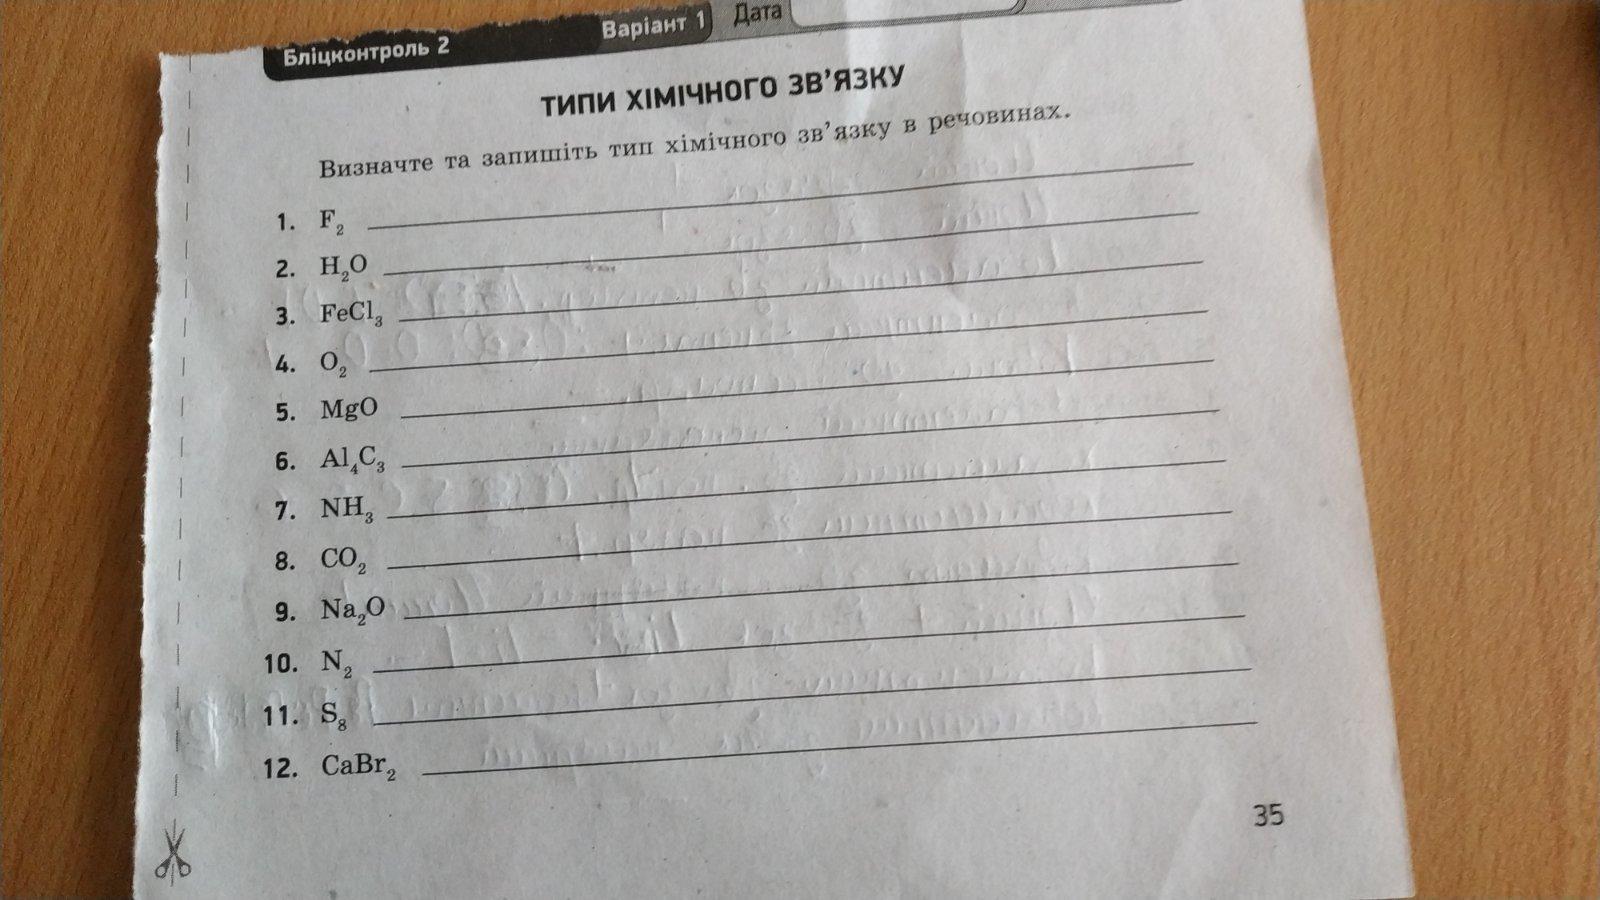 Бліцконтроль 2 Варіант 1 Дата
ТИПИ ХІМІЧНОГО ЗВ’ЯЗКУ
Визначте та запишіть тип хімічного зв’язку в речовинах.
1. F₂
2. H₂O
3. FeCl₃
4. O₂
5. MgO
6. Al₄C₃
7. NH₃
8. CO₂
9. Na₂O
10. N₂
11. S₈
12. CaBr₂
35